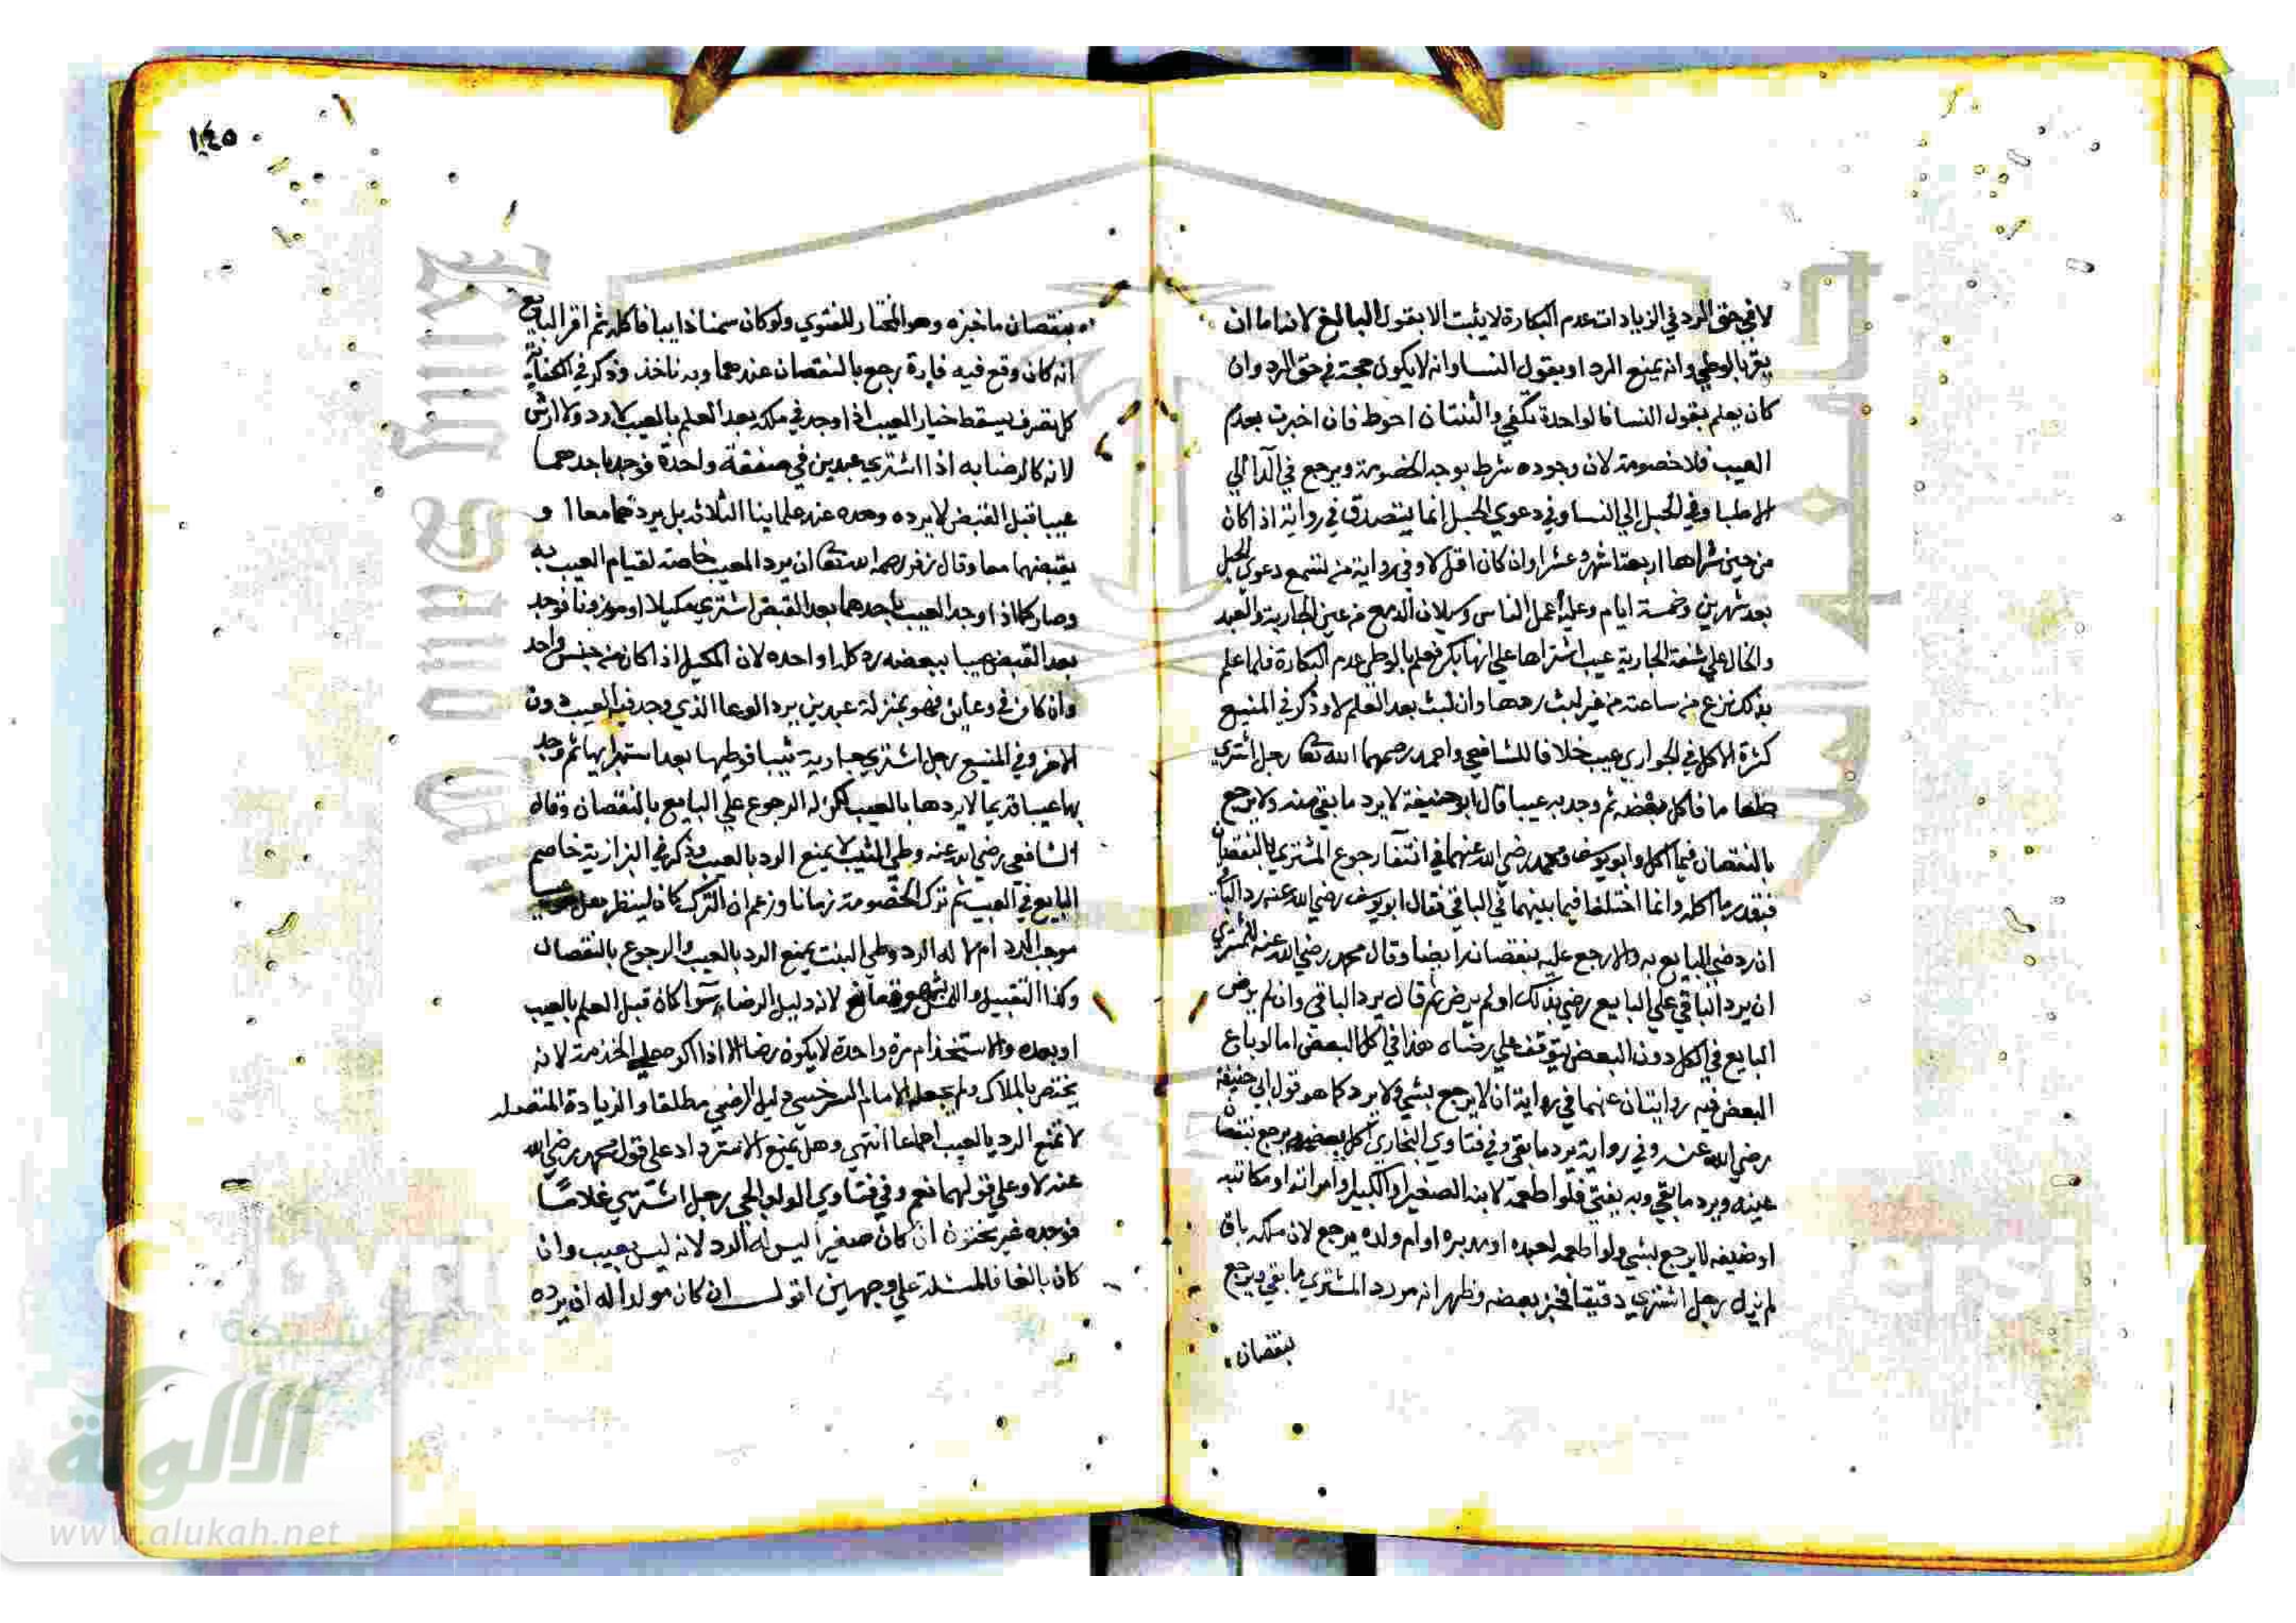 لا في حق الرد في الزيادات عدم البكارة لا يثبت الا بقول البالغ لانه اما ان
يقر بالوطي وانه يمنع الرد او بقول النسا وانه لا يكون حجة في حق الرد وان
كان يعلم بقول النسا فالواحدة تكفي والثنتان احوط فان اخبرت بعدم
العيب فلا خصومة لان وجوده شرط توجه الخصومة ويرجع في الدا الي
الاطبا وفي الحبل الي النسا وفي دعوي الحبل انما يتصدق في رواية اذا كان
من حين شراها اربعة اشهر وعشرا وان كان اقل لا وفي رواية تسمع دعوي الحبل
بعد شهرين وخمسة ايام وعليه عمل الناس وسيلان الدمع من عين الجارية والعبد
والخال علي شفة الجارية عيب اشتراها علي انها بكر فعلم بالوطي عدم البكارة فلما علم
بذلك نزع من ساعته من غير لبث ردها وان لبث بعد العلم لا وذكر في المنبع
كثرة الاكل في الجواري عيب خلافا للشافعي واحمد رحمهما الله تعا رجل اشتري
طعاما فاكل بعضه ثم وجد به عيبا قال ابو حنيفة لا يرد ما بقي منه ولا يرجع
بالنقصان فيما اكل وابو يوسف ومحمد رضي الله عنهما في رجوع المشتري بالنقصان
فيقدر ما اكله وانما اختلفا فيما بينهما في الباقي فقال ابو يوسف رضي الله عنه يرد الباقي
ان رضي البايع به والا رجع عليه بنقصانه ايضا وقال محمد رضي الله عنه للمشتري
ان يرد الباقي علي البايع رضي بذلك او لم يرض ثم قال يرد الباقي وان لم يرض
البايع في الكل دون البعض يتوقف علي رضاه هذا في اكل البعض اما لو باع
البعض فيه روايتان عنهما في رواية ان لا يرجع بشي ولا يرد كما هو قول ابي حنيفة
رضي الله عنه وفي رواية يرد ما بقي وفي فتاوي البخاري اكل بعضه يرجع بنقصان
عيبه ويرد ما بقي وبه يفتي فلو اطعمه لابنه الصغير او الكبير او امراته او مكاتبه
او ضيفه لا يرجع بشي ولو اطعمه لعبده او مدبره او ام ولده يرجع لان ملكه باق
لم يزل رجل اشتري دقيقا فخبز بعضه وظهر انه مر رد المشتري ما بقي ويرجع
بنقصان
١٤٥
بنقصان ما خبزه وهو المختار للفتوي ولو كان سمنا ذايبا فاكله ثم اقر البايع
انه كان وقع فيه فارة رجع بالنقصان عندهما وبه ناخذ وذكر في الكفاية
كل تصرف يسقط خيار العيب اذا وجد في ملكه بعد العلم بالعيب لا رد ولا ارش
لانه كالرضا به اذا اشتري عبدين في صفقة واحدة فوجد باحدهما
عيبا قبل القبض لا يرده وحده عند علماينا الثلاثه بل يردهما معا او
يقبضهما معا وقال زفر رحمه الله تعا ان يرد المعيب خاصة لقيام العيب به
وصار كما اذا وجد العيب باحدهما بعد القبض اشتري مكيلا او موزونا فوجد
بعد القبض عيبا ببعضه رد كله او احده لان المكيل اذا كان من جنس واحد
وان كان في وعاين فهو بمنزلة عبدين يرد الوعا الذي وجد فيه العيب دون
الاخر وفي المنبع رجل اشتري جارية ثيبا فوطيها بعد استبرايها ثم وجد
بها عيبا قديما لا يردها بالعيب لكن له الرجوع علي البايع بالنقصان وقال
الشافعي رضي الله عنه وطي الثيب لا يمنع الرد بالعيب وذكر في البزازية خاصم
البايع في العيب ثم ترك الخصومة زمانا وزعم ان الترك كان لينظر هل هو عيب
موجب الرد ام لا له الرد وطي البنت يمنع الرد بالعيب والرجوع بالنقصان
وكذا التقبيل والمس بشهوة مانع لانه دليل الرضاء سوا كان قبل العلم بالعيب
او بعده والاستخدام مرة واحدة لا يكون رضا الا اذا اكره علي الخدمة لانه
يختص بالملاك ولم يجعله الامام السرخسي دليل الرضي مطلقا والزيادة المتصلة
لا تمنع الرد بالعيب اجماعا انتهي وهل يمنع الاسترداد علي قول محمد رضي الله
عنه لا وعلي قولهما نعم وفي فتاوي الولوالجي رجل اشتري غلاما
فوجده غير مختون ان كان صغيرا ليس له الرد لانه ليس بعيب وان
كان بالغا فالمسئلة علي وجهين اقول ان كان مولدا له ان يرده
King Saud University
شبكة
الألوكة
www.alukah.net